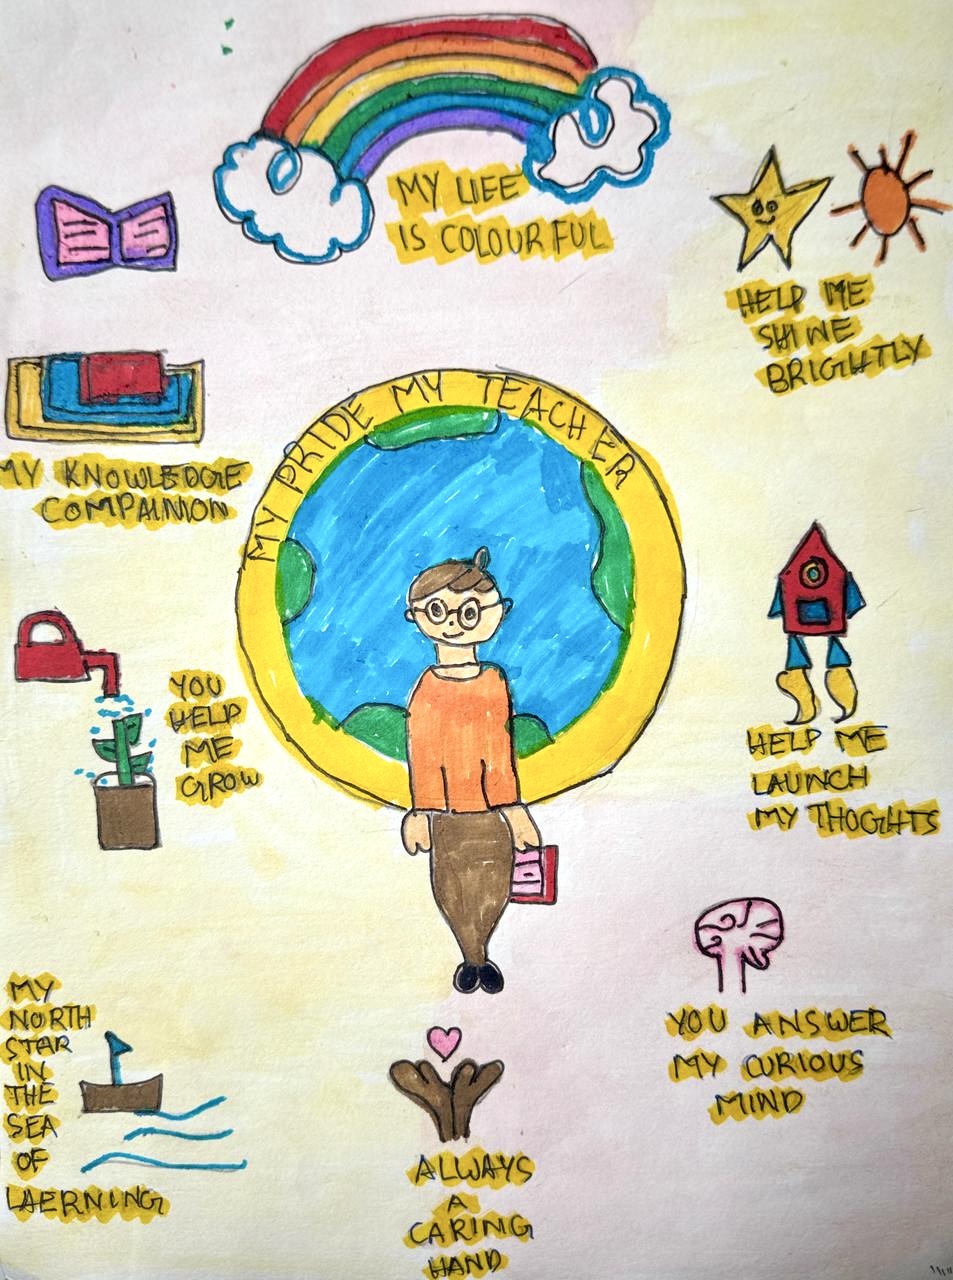 MY LIEE
IS COLOURFUL
HELP ME
SHINE
BRIGHTLY
MY PRIDE MY TEACHER
MY KNOWLEDGE
COMPAINION
YOU
HELP
ME
GROW
HELP ME
LAUNCH
MY THOGHTS
YOU ANSWER
MY CURIOUS
MIND
MY
NORTH
STAR
IN
THE
SEA
OF
LAERNING
ALWAYS
A
CARING
HAND